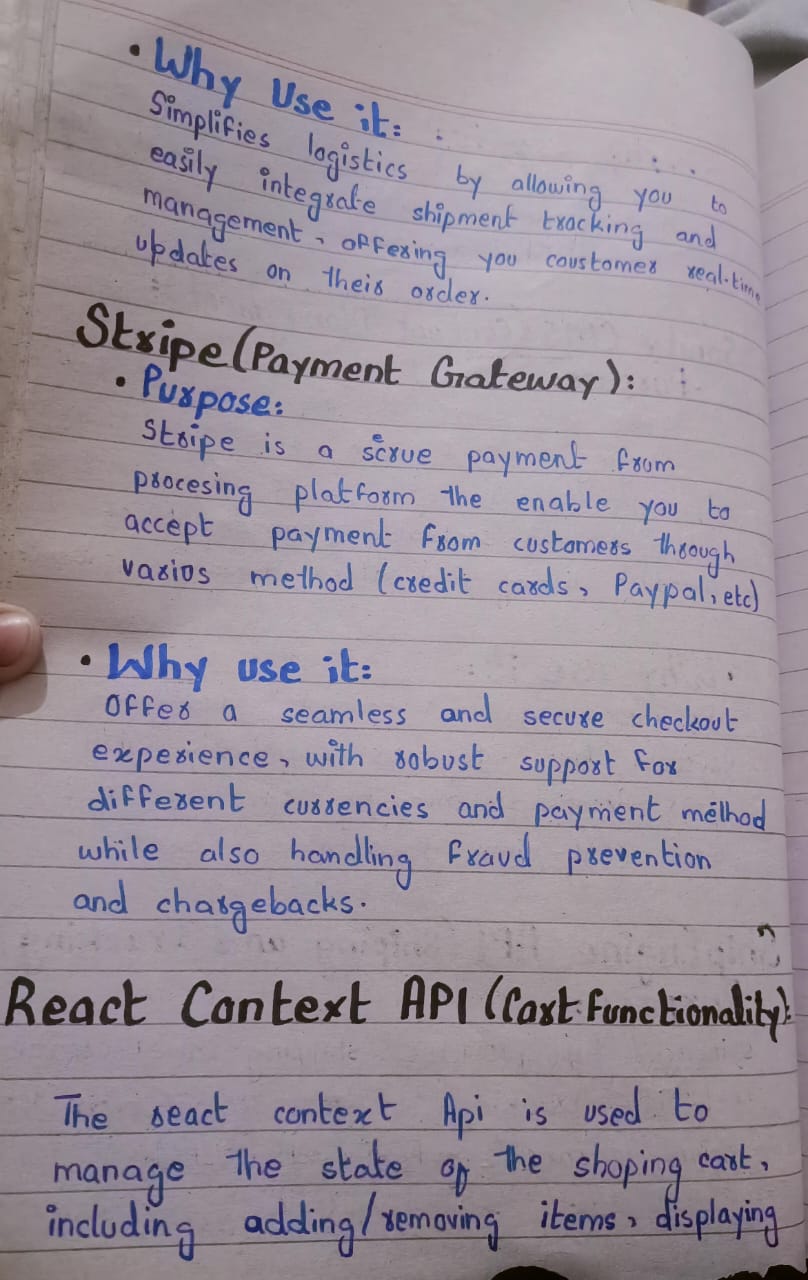 • Why Use it:
Simplifies logistics by allowing you to
easily integrate shipment tracking and
management, offering you coustomer real-time
updates on their order.
Stripe (Payment Gateway):
• Purpose:
Stripe is a payment from
procesing platform the enable you to
accept payment from customers through
varios method (credit cards, Paypal, etc)
• Why use it:
Offer a seamless and secure checkout
experience, with robust support for
different currencies and payment method
while also handling fraud prevention
and chargebacks.
React Context API (Cart Functionality):
The react context Api is used to
manage the state of the shoping cart,
including adding/removing items, displaying